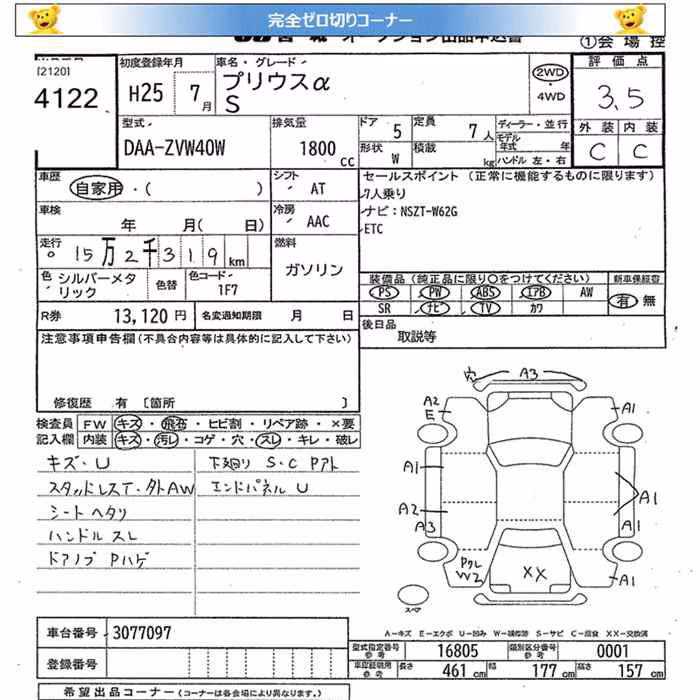 完全ゼロ切りコーナー
①会 場 控
[2120]
4122
初度登録年月
H25 7月
車名・グレード
プリウスα
S
2WD
・4WD
評 価 点
3.5
外 装 内 装
C C
型式
DAA-ZVW40W
排気量
1800 cc
ドア 5
定員 7人
形状 W
積載 kg
ディーラー・並行
モデル年式 年
ハンドル 左・右
車歴
自家用・( )
シフト
AT
セールスポイント (正常に機能するものに限ります)
7人乗り
ナビ:NSZT-W62G
ETC
車検
年 月( 日)
冷房
AAC
走行
15万2千319km
燃料
ガソリン
色 シルバーメタリック
色替
色コード
1F7
装備品(純正品に限り○をつけてください)
新車保証書
PS PW ABS エアB AW
SR ナビ TV カワ
有 無
R券 13,120円
名変通知期限 月 日
後日品
取説等
注意事項申告欄(不具合内容等は具体的に記入して下さい)
修復歴 有 〔箇所 〕
検査員記入欄
FW キズ・飛石・ヒビ割・リペア跡・×要
内装 キズ・汚レ・コゲ・穴・スレ・キレ・破レ
キズ・U
スタッドレスT・外AW
シートヘタリ
ハンドルスレ
ドアノブPハゲ
下廻り S・C Pアト
エンドパネルU
穴 A3
A2
E
A1
A1
A2
A3
A1
A1
A1
Pクレ
W2
XX
スペア
A-キズ E-エクボ U-凹み W-補修跡 S-サビ C-腐食 XX-交換済
車台番号 3077097
登録番号
型式指定番号 参考 16805
類別区分番号 参考 0001
車庫証明用 参考 長さ 461cm 幅 177cm 高さ 157cm
希望出品コーナー(コーナーは各会場により異なります。)